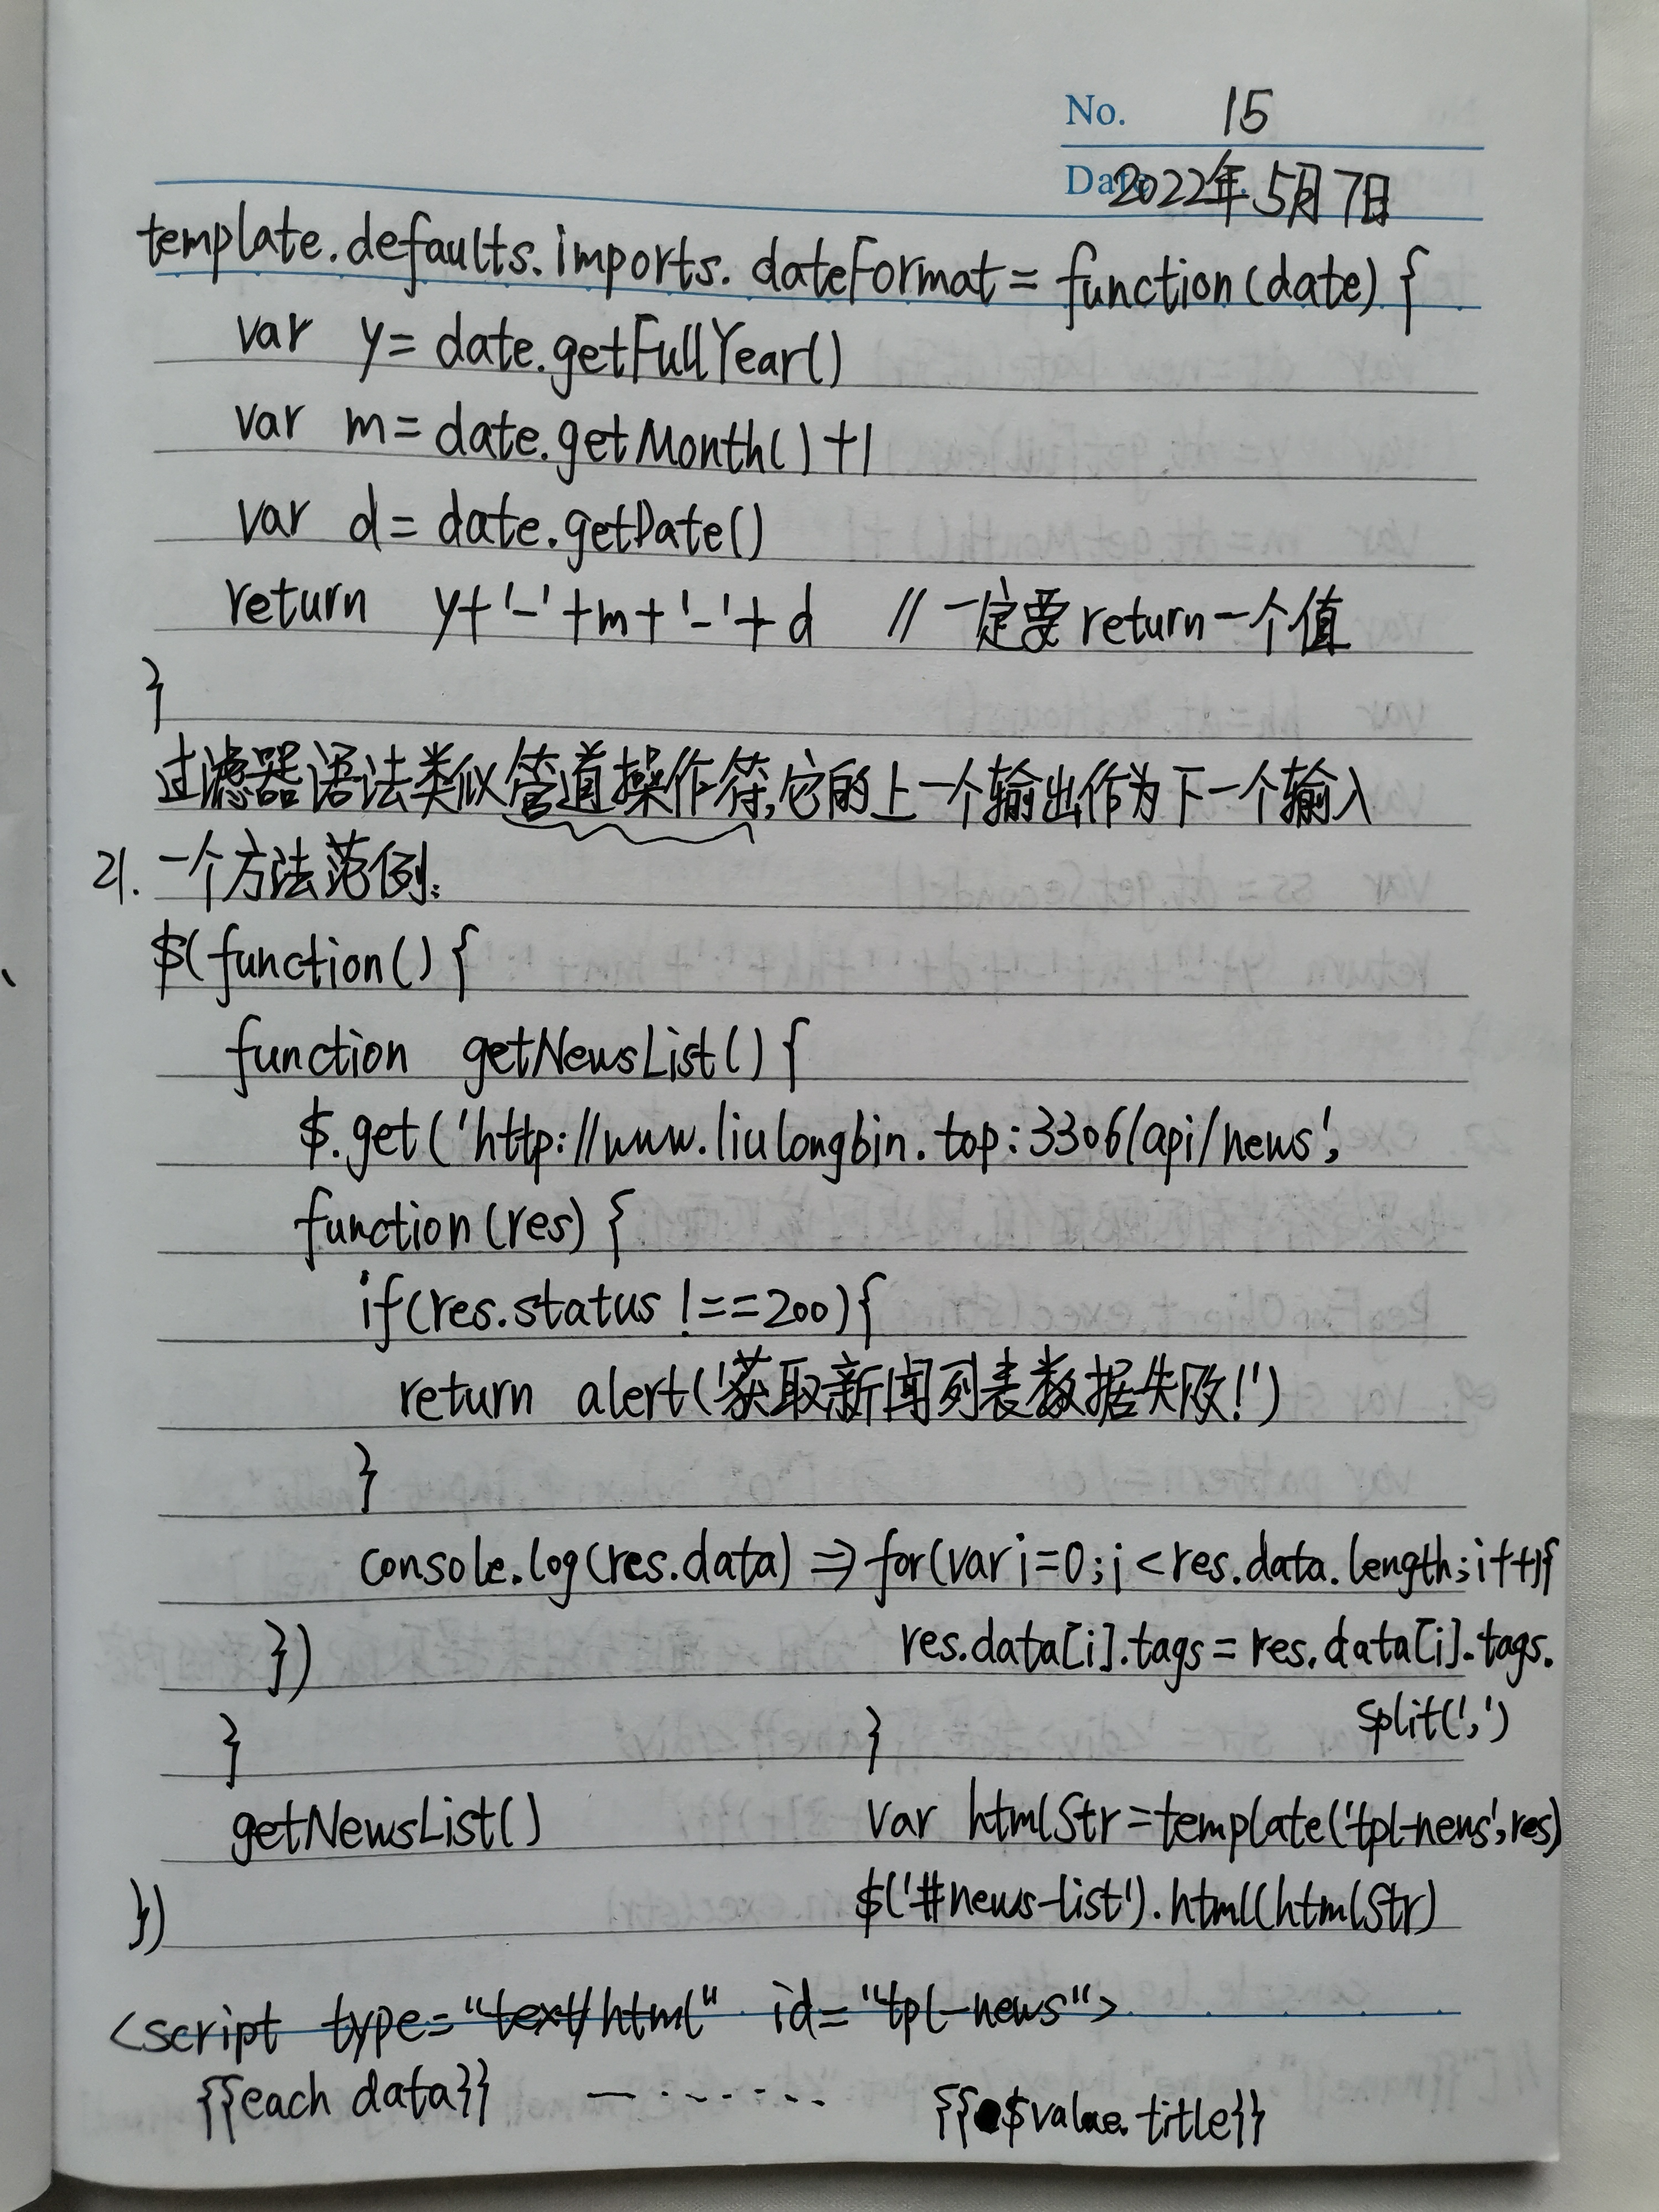 No. 15
Date 2022年5月7日
template.defaults.imports.dateFormat = function(date) {
var y = date.getFullYear()
var m = date.getMonth() + 1
var d = date.getDate()
return y + '-' + m + '-' + d // 一定要return一个值
}
过滤器语法类似管道操作符,它的上一个输出作为下一个输入
21. 一个方法范例:
$(function() {
function getNewsList() {
$.get('http://www.liulongbin.top:3306/api/news',
function(res) {
if(res.status !== 200) {
return alert('获取新闻列表数据失败!')
}
console.log(res.data) ⇒ for(var i=0; i<res.data.length; i++){
}) res.data[i].tags = res.data[i].tags.
split(',')
} }
getNewsList() var htmlStr = template('tpl-news', res)
}) $('#news-list').html(htmlStr)
<script type="text/html" id="tpl-news">
{{each data}} — ...... {{$value.title}}